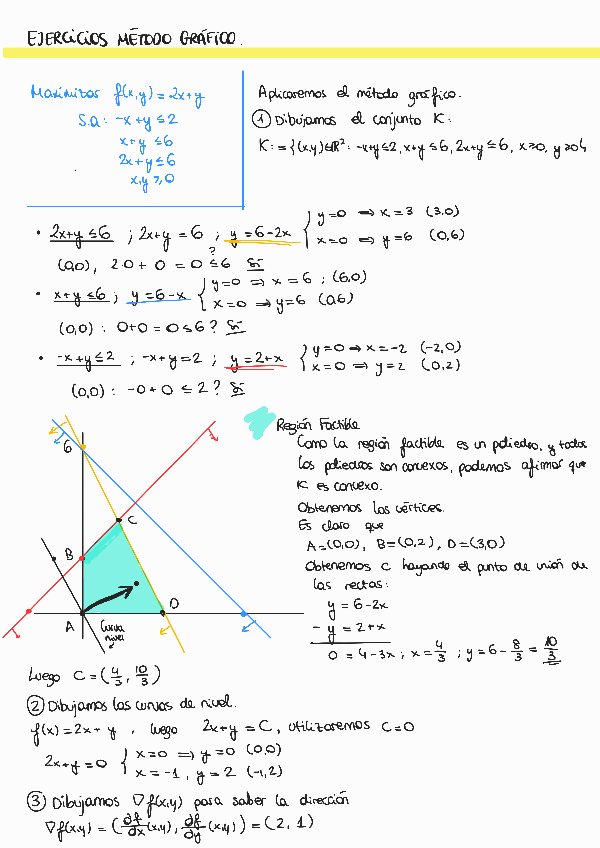 EJERCICIOS MÉTODO GRÁFICO.
Maximizar f(x,y) = 2x+y
S.a: -x+y ≤ 2
x+y ≤ 6
2x+y ≤ 6
x,y ≥ 0
Aplicaremos el método gráfico.
① Dibujamos el conjunto K:
K := {(x,y)∈ℝ²: -x+y≤2, x+y≤6, 2x+y≤6, x≥0, y≥0}
• 2x+y ≤ 6 ; 2x+y = 6 ; y = 6-2x { y=0 ⇒ x=3 (3,0)
x=0 ⇒ y=6 (0,6)
(0,0), 2·0 + 0 = 0 ≤ 6 ? Sí
• x+y ≤ 6 ; y = 6-x { y=0 ⇒ x=6 ; (6,0)
x=0 ⇒ y=6 (0,6)
(0,0) : 0+0 = 0 ≤ 6 ? Sí
• -x+y ≤ 2 ; -x+y = 2 ; y = 2+x { y=0 ⇒ x=-2 (-2,0)
x=0 ⇒ y=2 (0,2)
(0,0) : -0+0 ≤ 2 ? Sí
6
C
B
A
D
Curva
nivel
Región Factible
Como la región factible es un poliedro, y todos
los poliedros son convexos, podemos afirmar que
K es convexo.
Obtenemos los vértices.
Es claro que
A=(0,0), B=(0,2), D=(3,0)
Obtenemos C hayando el punto de unión de
las rectas:
y = 6-2x
- y = 2+x
0 = 4-3x ; x = 4/3 ; y = 6 - 8/3 = 10/3
Luego C = (4/3, 10/3)
② Dibujamos las curvas de nivel.
f(x) = 2x+y, luego 2x+y = C, utilizaremos C=0
2x+y = 0 { x=0 ⇒ y=0 (0,0)
x=-1, y=2 (-1,2)
③ Dibujamos ∇f(x,y) para saber la dirección
∇f(x,y) = (∂f/∂x (x,y), ∂f/∂y (x,y)) = (2, 1)